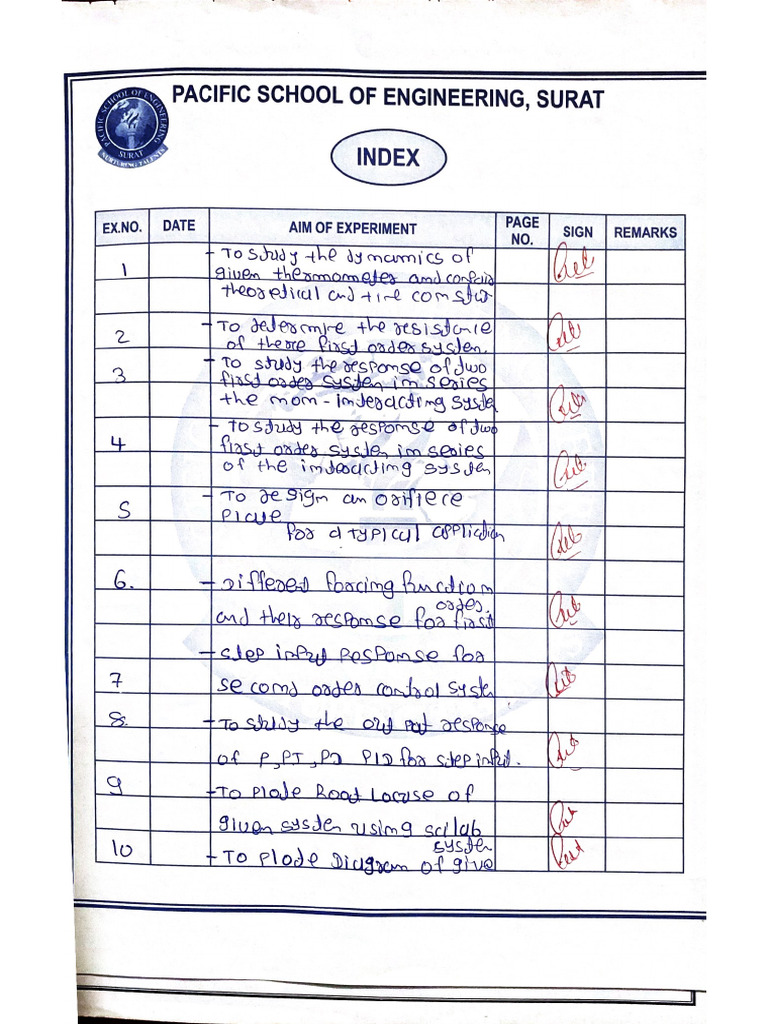 PACIFIC SCHOOL OF ENGINEERING, SURAT
PACIFIC SCHOOL OF ENGINEERING
SURAT
NURTURING TALENTS
INDEX
EX.NO. DATE AIM OF EXPERIMENT PAGE NO. SIGN REMARKS
1 - To study the dynamics of
given thermometer and
theoretical and time
2 - To determine the resistance
of there first order system.
3 - To study the response of two
first order system in series
the non-interacting system
4 - To study the response of two
first order system in series
of the interacting system
5 - To design an orifiece
Plate
for a typical application
6. - Different forcing function
and their response for first order.
- Step input Response for
7 second order control system
8. - To study the out put response
of P, PI, PD PID for step input.
9 - To Plode Root Locuse of
given system using scilab
10 - To Plode Diagram of give system